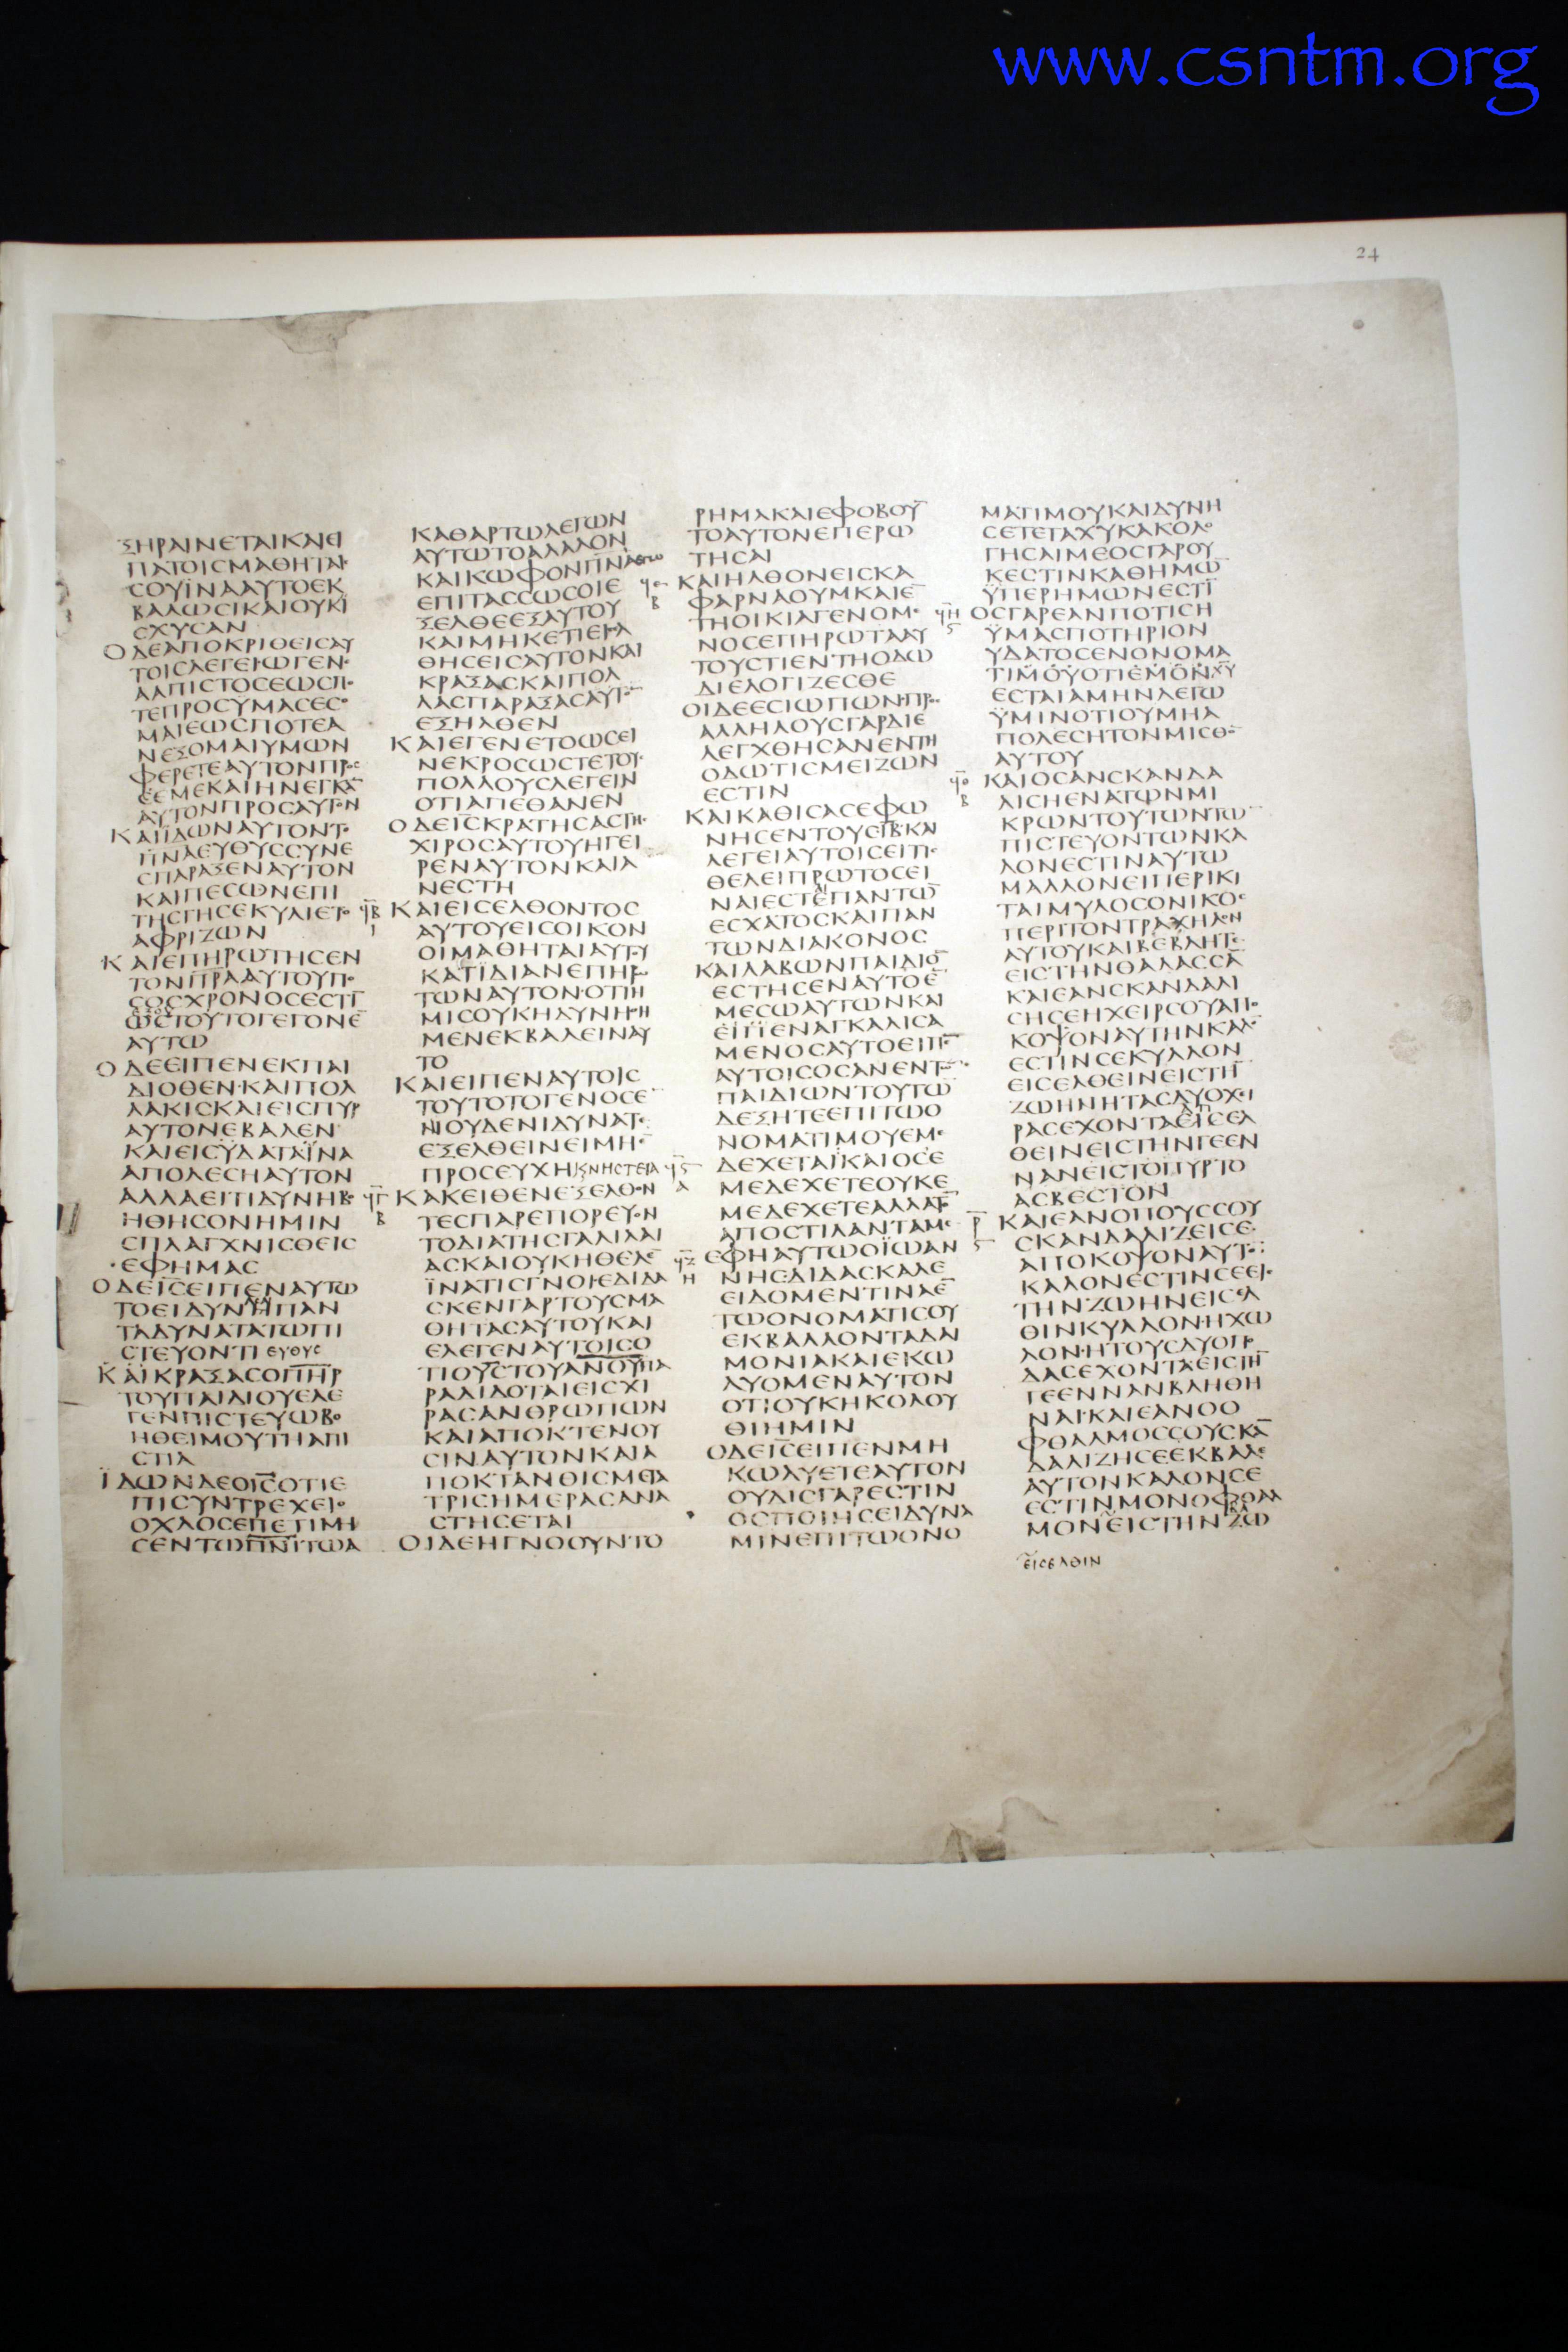 www.csntm.org
24
ΞΗΡΑΙΝΕΤΑΙΚΑΙΕΙ
ΠΑΤΟΙСΜΑΘΗΤΑΙ
СΟΥΪΝΑΑΥΤΟΕΚ
ΒΑΛΩСΙΚΑΙΟΥΚΪ
СΧΥСΑΝ
ΟΔΕΑΠΟΚΡΙΘΕΙСΑΥ
ΤΟΙСΛΕΓΕΙΩΓΕΝΕ
ΑΑΠΙСΤΟСΕΩСΠΟ
ΤΕΠΡΟСΫΜΑСΕСΟ
ΜΑΙΕΩСΠΟΤΕΑ
ΝΕΞΟΜΑΙΥΜΩΝ
ΦΕΡΕΤΕΑΥΤΟΝΠΡΟС
ΕΜΕΚΑΙΗΝΕΓΚΑ̅
ΑΥΤΟΝΠΡΟСΑΥΤΟΝ
ΚΑΙΪΔΩΝΑΥΤΟΝΤΟ
Π̅Ν̅ΑΕΥΘΥССΥΝΕ
СΠΑΡΑΞΕΝΑΥΤΟΝ
ΚΑΙΠΕСΩΝΕΠΙ
ΤΗСΓΗСΕΚΥΛΙΕΤΟ
ΑΦΡΙΖΩΝ
ΚΑΙΕΠΗΡΩΤΗСΕΝ
ΤΟΝΠ̅Ρ̅ΑΑΥΤΟΥΠΟ
СΟСΧΡΟΝΟСΕСΤΙ̅
ΩСΤΟΥΤΟΓΕΓΟΝΕ
ΑΥΤΩ
ΟΔΕΕΙΠΕΝΕΚΠΑΙ
ΔΙΟΘΕΝ·ΚΑΙΠΟΛ
ΛΑΚΙСΚΑΙΕΙСΠΥΡ
ΑΥΤΟΝΕΒΑΛΕΝ
ΚΑΙΕΙСΫΔΑΤΑΪΝΑ
ΑΠΟΛΕСΗΑΥΤΟΝ
ΑΛΛΑΕΙΤΙΔΥΝΗΒΟ
ΗΘΗСΟΝΗΜΙΝ
СΠΛΑΓΧΝΙСΘΕΙС
ΕΦΗΜΑС
ΟΔΕΙ̅С̅ΕΙΠΕΝΑΥΤΩ
ΤΟΕΙΔΥΝΗΠΑΝ
ΤΑΔΥΝΑΤΑΤΩΠΙ
СΤΕΥΟΝΤΙ ΕΥΘΥС
ΚΑΙΚΡΑΞΑСΟΠ̅Η̅Ρ̅
ΤΟΥΠΑΙΔΙΟΥΕΛΕ
ΓΕΝΠΙСΤΕΥΩΒΟ
ΗΘΕΙΜΟΥΤΗΑΠΙ
СΤΙΑ
ΪΔΩΝΔΕΟΙ̅С̅ΟΤΙΕ
ΠΙСΥΝΤΡΕΧΕΙΟ
ΟΧΛΟСΕΠΕΤΙΜΗ
СΕΝΤΩΠ̅Ν̅Ι̅ΤΩΑ
ΚΑΘΑΡΤΩΛΕΓΩΝ
ΑΥΤΩΤΟΑΛΑΛΟΝ
ΚΑΙΚΩΦΟΝΠ̅Ν̅Α̅ΕΓΩ
ΕΠΙΤΑССΩСΟΙΕ
ΞΕΛΘΕΕΞΑΥΤΟΥ
ΚΑΙΜΗΚΕΤΙΕΙСΑ
ΘΗСΕΙСΑΥΤΟΝΚΑΙ
ΚΡΑΞΑСΚΑΙΠΟΛ
ΛΑСΠΑΡΑΞΑСΑΥΤΟ̅
ΕΞΗΛΘΕΝ
ΚΑΙΕΓΕΝΕΤΟΩСΕΙ
ΝΕΚΡΟСΩСΤΕΤΟΥС
ΠΟΛΛΟΥСΛΕΓΕΙΝ
ΟΤΙΑΠΕΘΑΝΕΝ
ΟΔΕΙ̅С̅ΚΡΑΤΗСΑСΤΗС
ΧΙΡΟСΑΥΤΟΥΗΓΕΙ
ΡΕΝΑΥΤΟΝΚΑΙΑ
ΝΕСΤΗ
ΚΑΙΕΙСΕΛΘΟΝΤΟС
ΑΥΤΟΥΕΙСΟΙΚΟΝ
ΟΙΜΑΘΗΤΑΙΑΥΤΟΥ
ΚΑΤΪΔΙΑΝΕΠΗΡΩ
ΤΩΝΑΥΤΟΝ·ΟΤΙΗ
ΜΙСΟΥΚΗΔΥΝΗΘΗ
ΜΕΝΕΚΒΑΛΕΙΝΑΥ
ΤΟ
ΚΑΙΕΙΠΕΝΑΥΤΟΙС
ΤΟΥΤΟΤΟΓΕΝΟСΕ
ΝΟΥΔΕΝΙΔΥΝΑΤΑΙ
ΕΞΕΛΘΕΙΝΕΙΜΗΕ̅
ΠΡΟСΕΥΧΗΚϚΝΗСΤΕΙΑ
ΚΑΚΕΙΘΕΝΕΞΕΛΘΟΝ
ΤΕСΠΑΡΕΠΟΡΕΥΟΝ
ΤΟΔΙΑΤΗСΓΑΛΙΛΑΙ
ΑСΚΑΙΟΥΚΗΘΕΛΕ̅
ΪΝΑΤΙСΓΝΟΙΕΔΙΔΑ
СΚΕΝΓΑΡΤΟΥСΜΑ
ΘΗΤΑСΑΥΤΟΥΚΑΙ
ΕΛΕΓΕΝΑΥΤΟΙСΟ
ΤΙΟΥ̅С̅ΤΟΥΑ̅Ν̅Ο̅Υ̅ΠΑ
ΡΑΔΙΔΟΤΑΙΕΙСΧΙ
ΡΑСΑΝΘΡΩΠΩΝ
ΚΑΙΑΠΟΚΤΕΝΟΥ
СΙΝΑΥΤΟΝΚΑΙΑ
ΠΟΚΤΑΝΘΙСΜΕΤΑ
ΤΡΙСΗΜΕΡΑСΑΝΑ
СΤΗСΕΤΑΙ
ΟΙΔΕΗΓΝΟΟΥΝΤΟ
ΡΗΜΑΚΑΙΕΦΟΒΟΥ̅
ΤΟΑΥΤΟΝΕΠΕΡΩ
ΤΗСΑΙ
ΚΑΙΗΛΘΟΝΕΙСΚΑ
ΦΑΡΝΑΟΥΜΚΑΙΕ̅
ΤΗΟΙΚΙΑΓΕΝΟΜΕ
ΝΟСΕΠΗΡΩΤΑΑΥ
ΤΟΥСΤΙΕΝΤΗΟΔΩ
ΔΙΕΛΟΓΙΖΕСΘΕ
ΟΙΔΕΕСΙΩΠΩΝ·ΠΡΟС
ΑΛΛΗΛΟΥСΓΑΡΔΙΕ
ΛΕΓΧΘΗСΑΝΕΝΤΗ
ΟΔΩΤΙСΜΕΙΖΩΝ
ΕСΤΙΝ
ΚΑΙΚΑΘΙСΑСΕΦΩ
ΝΗСΕΝΤΟΥСΙ̅Β̅ΚΑΙ
ΛΕΓΕΙΑΥΤΟΙСΕΙΤΙС
ΘΕΛΕΙΠΡΩΤΟСΕΙ
ΝΑΙΕСΤΕΠΑΝΤΩ̅
ΕСΧΑΤΟСΚΑΙΠΑΝ
ΤΩΝΔΙΑΚΟΝΟС
ΚΑΙΛΑΒΩΝΠΑΙΔΙΟ̅
ΕСΤΗСΕΝΑΥΤΟΕ̅
ΜΕСΩΑΥΤΩΝΚΑΙ
ΕΝΑΓΚΑΛΙСΑ
ΜΕΝΟСΑΥΤΟΕΙΠΕ̅
ΑΥΤΟΙСΟСΑΝΕΝΤΩ̅
ΠΑΙΔΙΩΝΤΟΥΤΩ̅
ΔΕΞΗΤΕΕΠΙΤΩΟ
ΝΟΜΑΤΙΜΟΥΕΜΕ
ΔΕΧΕΤΑΪΚΑΙΟСΕ
ΜΕΔΕΧΕΤΕΟΥΚΕ
ΜΕΔΕΧΕΤΕΑΛΛΑΤΟ̅
ΑΠΟСΤΙΛΑΝΤΑΜΕ
ΕΦΗΑΥΤΩΟΪΩΑΝ
ΝΗСΔΙΔΑСΚΑΛΕ
ΕΙΔΟΜΕΝΤΙΝΑΕ̅
ΤΩΟΝΟΜΑΤΙСΟΥ
ΕΚΒΑΛΛΟΝΤΑΔΑΙ
ΜΟΝΙΑΚΑΙΕΚΩ
ΛΥΟΜΕΝΑΥΤΟΝ
ΟΤΙΟΥΚΗΚΟΛΟΥ
ΘΙΗΜΙΝ
ΟΔΕΙ̅С̅ΕΙΠΕΝΜΗ
ΚΩΛΥΕΤΕΑΥΤΟΝ
ΟΥΔΙСΓΑΡΕСΤΙΝ
ΟСΠΟΙΗСΕΙΔΥΝΑ
ΜΙΝΕΠΙΤΩΟΝΟ
ΜΑΤΙΜΟΥΚΑΙΔΥΝΗ
СΕΤΕΤΑΧΥΚΑΚΟΛΟ
ΓΗСΑΙΜΕΟСΓΑΡΟΥ
ΚΕСΤΙΝΚΑΘΗΜΩ̅
ΫΠΕΡΗΜΩΝΕСΤΙ̅
ΟСΓΑΡΕΑΝΠΟΤΙСΗ
ΫΜΑСΠΟΤΗΡΙΟΝ
ΥΔΑΤΟСΕΝΟΝΟΜΑ
ΤΙΜΟΥΟΤΙΕΜΟΝΧΥ
ΕСΤΑΙΑΜΗΝΛΕΓΩ
ΫΜΙΝΟΤΙΟΥΜΗΑ
ΠΟΛΕСΗΤΟΝΜΙСΘΟ̅
ΑΥΤΟΥ
ΚΑΙΟСΑΝСΚΑΝΔΑ
ΛΙСΗΕΝΑΤΩΝΜΙ
ΚΡΩΝΤΟΥΤΩΝΤΩ̅
ΠΙСΤΕΥΟΝΤΩΝΚΑ
ΛΟΝΕСΤΙΝΑΥΤΩ
ΜΑΛΛΟΝΕΙΠΕΡΙΚΙ
ΤΑΙΜΥΛΟСΟΝΙΚΟС
ΠΕΡΙΤΟΝΤΡΑΧΗΛΟΝ
ΑΥΤΟΥΚΑΙΒΕΒΛΗΤΑΙ
ΕΙСΤΗΝΘΑΛΑССΑ̅
ΚΑΙΕΑΝСΚΑΝΔΑΛΙ
СΗСΕΗΧΕΙΡСΟΥΑΠΟ
ΚΟΨΟΝΑΥΤΗΝΚΑΛΟ̅
ΕСΤΙΝСΕΚΥΛΛΟΝ
ΕΙСΕΛΘΕΙΝΕΙСΤΗ̅
ΖΩΗΝΗΤΑСΔΥΟΧΕΙ
ΡΑСΕΧΟΝΤΑΕΙСΕΛ
ΘΕΙΝΕΙСΤΗΝΓΕΕΝ
ΝΑΝΕΙСΤΟΠΥΡΤΟ
ΑСΒΕСΤΟΝ
ΚΑΙΕΑΝΟΠΟΥССΟΥ
СΚΑΝΔΑΛΙΖΕΙСΕ
ΑΠΟΚΟΨΟΝΑΥΤΟ̅
ΚΑΛΟΝΕСΤΙΝСΕΕΙС
ΤΗΝΖΩΗΝΕΙСΕΛ
ΘΙΝΚΥΛΛΟΝ·ΗΧΩ
ΛΟΝ·ΗΤΟΥСΔΥΟΠΟ
ΔΑСΕΧΟΝΤΑΕΙСΤΗ̅
ΓΕΕΝΝΑΝΒΛΗΘΗ
ΝΑΙ·ΚΑΙΕΑΝΟΟ
ΦΘΑΛΜΟССΟΥСΚΑ̅
ΔΑΛΙΖΗСΕΕΚΒΑΛΕ
ΑΥΤΟΝΚΑΛΟΝСΕ
ΕСΤΙΝΜΟΝΟΦΘΑΛ
ΜΟΝΕΙСΤΗΝΖΩ
ΕΙСΕΛΘΙΝ